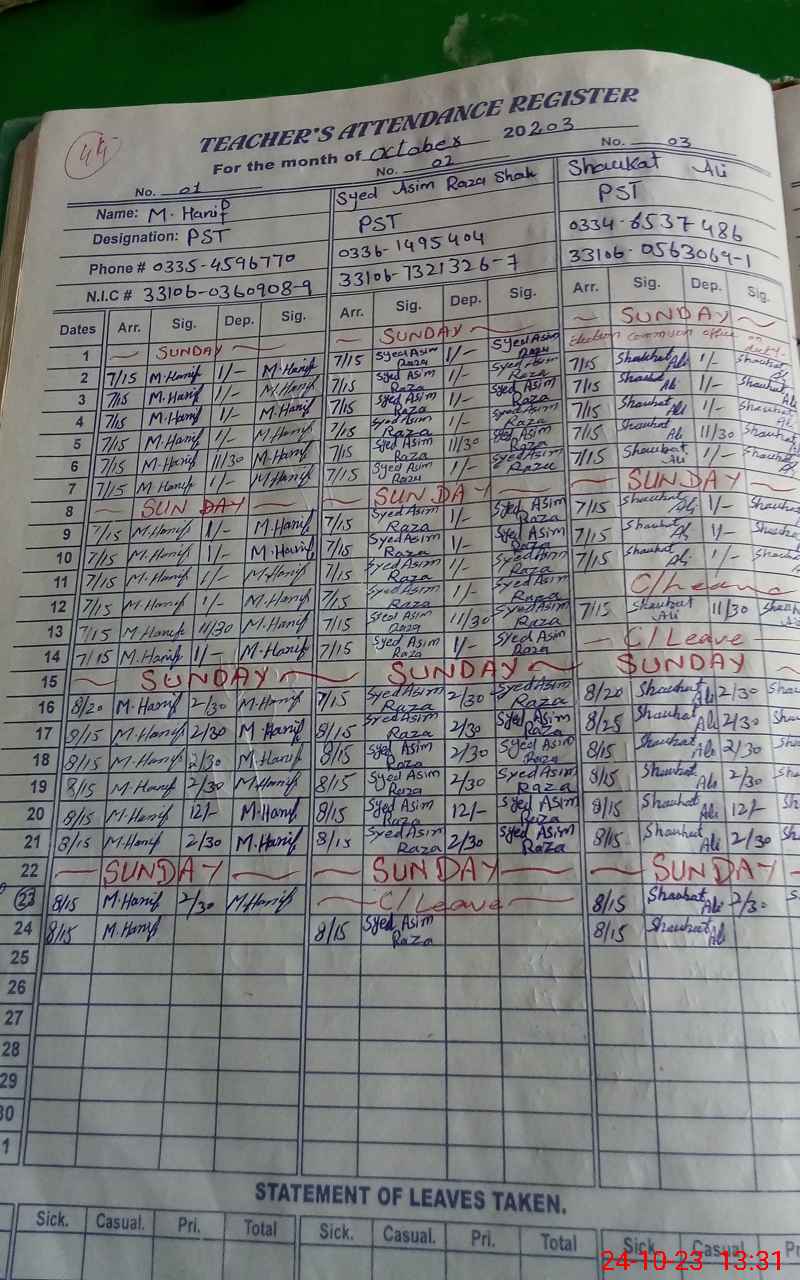 44
TEACHER'S ATTENDANCE REGISTER
For the month of October 20203
No. 01 No. 02 No. 03
Name: M. Hanif Syed Asim Raza Shah Shaukat Ali
Designation: PST PST PST
Phone # 0335-4596770 0336-1495404 0334-6537486
N.I.C # 33106-0360908-9 33106-7321326-7 33106-0563069-1
Dates Arr. Sig. Dep. Sig. Arr. Sig. Dep. Sig. Arr. Sig. Dep. Sig.
1 SUNDAY SUNDAY SUNDAY
2 7/15 M.Hanif 1/- M.Hanif 7/15 Syed Asim Raza 1/- Syed Asim Raza Election commission office on duty
3 7/15 M.Hanif 1/- M.Hanif 7/15 Syed Asim Raza 1/- Syed Asim Raza 7/15 Shaukat Ali 1/- Shaukat
4 7/15 M.Hanif 1/- M.Hanif 7/15 Syed Asim Raza 1/- Syed Asim Raza 7/15 Shaukat Ali 1/- Shaukat Ali
5 7/15 M.Hanif 1/- M.Hanif 7/15 Syed Asim Raza 1/- Syed Asim Raza 7/15 Shaukat Ali 1/- Shaukat Ali
6 7/15 M.Hanif 11/30 M.Hanif 7/15 Syed Asim Raza 11/30 Syed Asim Raza 7/15 Shaukat Ali 11/30 Shaukat Ali
7 7/15 M.Hanif 1/- M.Hanif 7/15 Syed Asim Raza 1/- Syed Asim Raza 7/15 Shaukat Ali 1/- Shaukat Ali
8 SUNDAY SUNDAY SUNDAY
9 7/15 M.Hanif 1/- M.Hanif 7/15 Syed Asim Raza 1/- Syed Asim Raza 7/15 Shaukat Ali 1/- Shaukat
10 7/15 M.Hanif 1/- M.Hanif 7/15 Syed Asim Raza 1/- Syed Asim Raza 7/15 Shaukat Ali 1/- Shaukat
11 7/15 M.Hanif 1/- M.Hanif 7/15 Syed Asim Raza 1/- Syed Asim Raza 7/15 Shaukat Ali 1/- Shaukat
12 7/15 M.Hanif 1/- M.Hanif 7/15 Syed Asim Raza 1/- Syed Asim Raza C/Leave
13 7/15 M.Hanif 11/30 M.Hanif 7/15 Syed Asim Raza 11/30 Syed Asim Raza 7/15 Shaukat Ali 11/30 Shauka Ali
14 7/15 M.Hanif 1/- M.Hanif 7/15 Syed Asim Raza 1/- Syed Asim Raza C/Leave
15 SUNDAY SUNDAY SUNDAY
16 8/20 M.Hanif 2/30 M.Hanif 7/15 Syed Asim Raza 2/30 Syed Asim Raza 8/20 Shaukat Ali 2/30 Sha
17 8/15 M.Hanif 2/30 M.Hanif 8/15 Syed Asim Raza 2/30 Syed Asim Raza 8/25 Shaukat Ali 2/30 Sha
18 8/15 M.Hanif 2/30 M.Hanif 8/15 Syed Asim Raza 2/30 Syed Asim Raza 8/15 Shaukat Ali 2/30 Sha
19 8/15 M.Hanif 2/30 M.Hanif 8/15 Syed Asim Raza 2/30 Syed Asim Raza 8/15 Shaukat Ali 2/30 Sha
20 8/15 M.Hanif 12/- M.Hanif 8/15 Syed Asim Raza 12/- Syed Asim Raza 8/15 Shaukat Ali 12/- Sha
21 8/15 M.Hanif 2/30 M.Hanif 8/15 Syed Asim Raza 2/30 Syed Asim Raza 8/15 Shaukat Ali 2/30 Sh
22 SUNDAY SUNDAY SUNDAY
23 8/15 M.Hanif 2/30 M.Hanif C/Leave 8/15 Shaukat Ali 2/30 S
24 8/15 M.Hanif 8/15 Syed Asim Raza 8/15 Shaukat Ali
25
26
27
28
29
30
1
STATEMENT OF LEAVES TAKEN.
Sick. Casual. Pri. Total Sick. Casual. Pri. Total Sick. Casual Pr
24-10-23 13:31